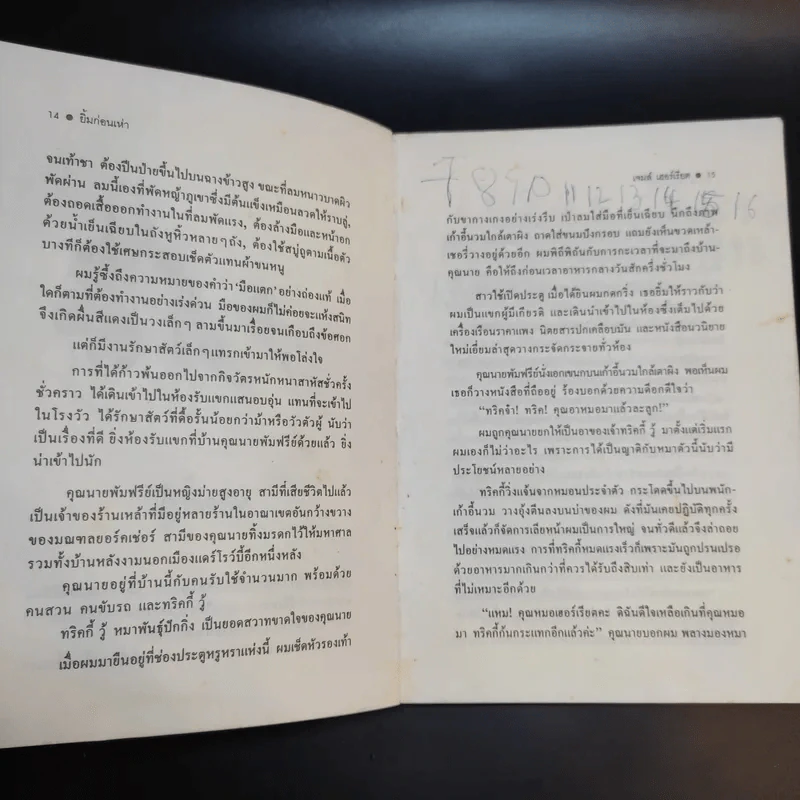 14 ● ยิ้มก่อนเห่า
จนเท้าชา ต้องปีนป่ายขึ้นไปบนฉางข้าวสูง ขณะที่ลมหนาวบาดผิว
พัดผ่าน ลมนี้เองที่พัดหญ้าภูเขาซึ่งมีต้นแข็งเหมือนลวดให้ราบลู่,
ต้องถอดเสื้อออกทำงานในที่ลมพัดแรง, ต้องล้างมือและหน้าอก
ด้วยน้ำเย็นเฉียบในถังหูหิ้วหลายๆ ถัง, ต้องใช้สบู่ถูตามเนื้อตัว
บางทีก็ต้องใช้เศษกระสอบเช็ดตัวแทนผ้าขนหนู
ผมรู้ซึ้งถึงความหมายของคำว่า 'มือแตก' อย่างถ่องแท้ เมื่อ
ใดก็ตามที่ต้องทำงานอย่างเร่งด่วน มือของผมก็ไม่ค่อยจะแห้งสนิท
จึงเกิดผื่นสีแดงเป็นวงเล็กๆ ลามขึ้นมาเรื่อยจนเกือบถึงข้อศอก
แต่ก็มีงานรักษาสัตว์เล็กๆ แทรกเข้ามาให้พอโล่งใจ
การที่ได้ก้าวพ้นออกไปจากกิจวัตรหนักหนาสาหัสชั่วครั้ง
ชั่วคราว ได้เดินเข้าไปในห้องรับแขกแสนอบอุ่น แทนที่จะเข้าไป
ในโรงวัว ได้รักษาสัตว์ที่ดื้อรั้นน้อยกว่าม้าหรือวัวตัวผู้ นับว่า
เป็นเรื่องที่ดี ยิ่งห้องรับแขกที่บ้านคุณนายพัมฟรีย์ด้วยแล้ว ยิ่ง
น่าเข้าไปนัก
คุณนายพัมฟรีย์เป็นหญิงม่ายสูงอายุ สามีที่เสียชีวิตไปแล้ว
เป็นเจ้าของร้านเหล้าที่มีอยู่หลายร้านในอาณาเขตอันกว้างขวาง
ของมณฑลยอร์คเช่อร์ สามีของคุณนายทิ้งมรดกไว้ให้มหาศาล
รวมทั้งบ้านหลังงามนอกเมืองแดร์โรว์บี้อีกหนึ่งหลัง
คุณนายอยู่ที่บ้านนี้กับคนรับใช้จำนวนมาก พร้อมด้วย
คนสวน คนขับรถ และทริคกี้ วู้
ทริคกี้ วู้ หมาพันธุ์ปักกิ่ง เป็นยอดสวาทขาดใจของคุณนาย
เมื่อผมมายืนอยู่ที่ช่องประตูหรูหราแห่งนี้ ผมเช็ดหัวรองเท้า
เจมส์ เฮอร์เรียต ● 15
7 8 9 10 11 12 13 14 15 16
กับขากางเกงอย่างเร่งรีบ เป่าลมใส่มือที่เย็นเฉียบ นึกถึงภาพ
เก้าอี้นวมใกล้เตาผิง ถาดใส่ขนมปังกรอบ แถมยังเห็นขวดเหล้า-
เชอรี่วางอยู่ด้วยอีก ผมพิถีพิถันกับการกะเวลาที่จะมาถึงบ้าน-
คุณนาย คือให้ถึงก่อนเวลาอาหารกลางวันสักครึ่งชั่วโมง
สาวใช้เปิดประตู เมื่อได้ยินผมกดกริ่ง เธอยิ้มให้ราวกับว่า
ผมเป็นแขกผู้มีเกียรติ และเดินนำเข้าไปในห้องซึ่งเต็มไปด้วย
เครื่องเรือนราคาแพง นิตยสารปกเคลือบมัน และหนังสือนวนิยาย
ใหม่เอี่ยมล่าสุดวางกระจัดกระจายทั่วห้อง
คุณนายพัมฟรีย์นั่งเอกเขนกบนเก้าอี้นวมใกล้เตาผิง พอเห็นผม
เธอก็วางหนังสือที่ถืออยู่ ร้องบอกด้วยความดีอกดีใจว่า
“ทริคจ๋า! ทริค! คุณอาหมอมาแล้วละลูก!”
ผมถูกคุณนายยกให้เป็นอาของเจ้าทริคกี้ วู้ มาตั้งแต่เริ่มแรก
ผมเองก็ไม่ว่าอะไร เพราะการได้เป็นญาติกับหมาตัวนี้นับว่ามี
ประโยชน์หลายอย่าง
ทริคกี้วิ่งแจ้นจากหมอนประจำตัว กระโดดขึ้นไปบนพนัก-
เก้าอี้นวม วางอุ้งตีนลงบนบ่าของผม ดังที่มันเคยปฏิบัติทุกครั้ง
เสร็จแล้วก็จัดการเลียหน้าผมเป็นการใหญ่ จนทั่วดีแล้วจึงล่าถอย
ไปอย่างหมดแรง การที่ทริคกี้หมดแรงเร็วก็เพราะมันถูกปรนเปรอ
ด้วยอาหารมากเกินกว่าที่ควรได้รับถึงสิบเท่า และยังเป็นอาหาร
ที่ไม่เหมาะอีกด้วย
“แหม! คุณหมอเฮอร์เรียตคะ ดิฉันดีใจเหลือเกินที่คุณหมอ
มา ทริคกี้ก้นกระแทกอีกแล้วค่ะ” คุณนายบอกผม พลางมองหมา